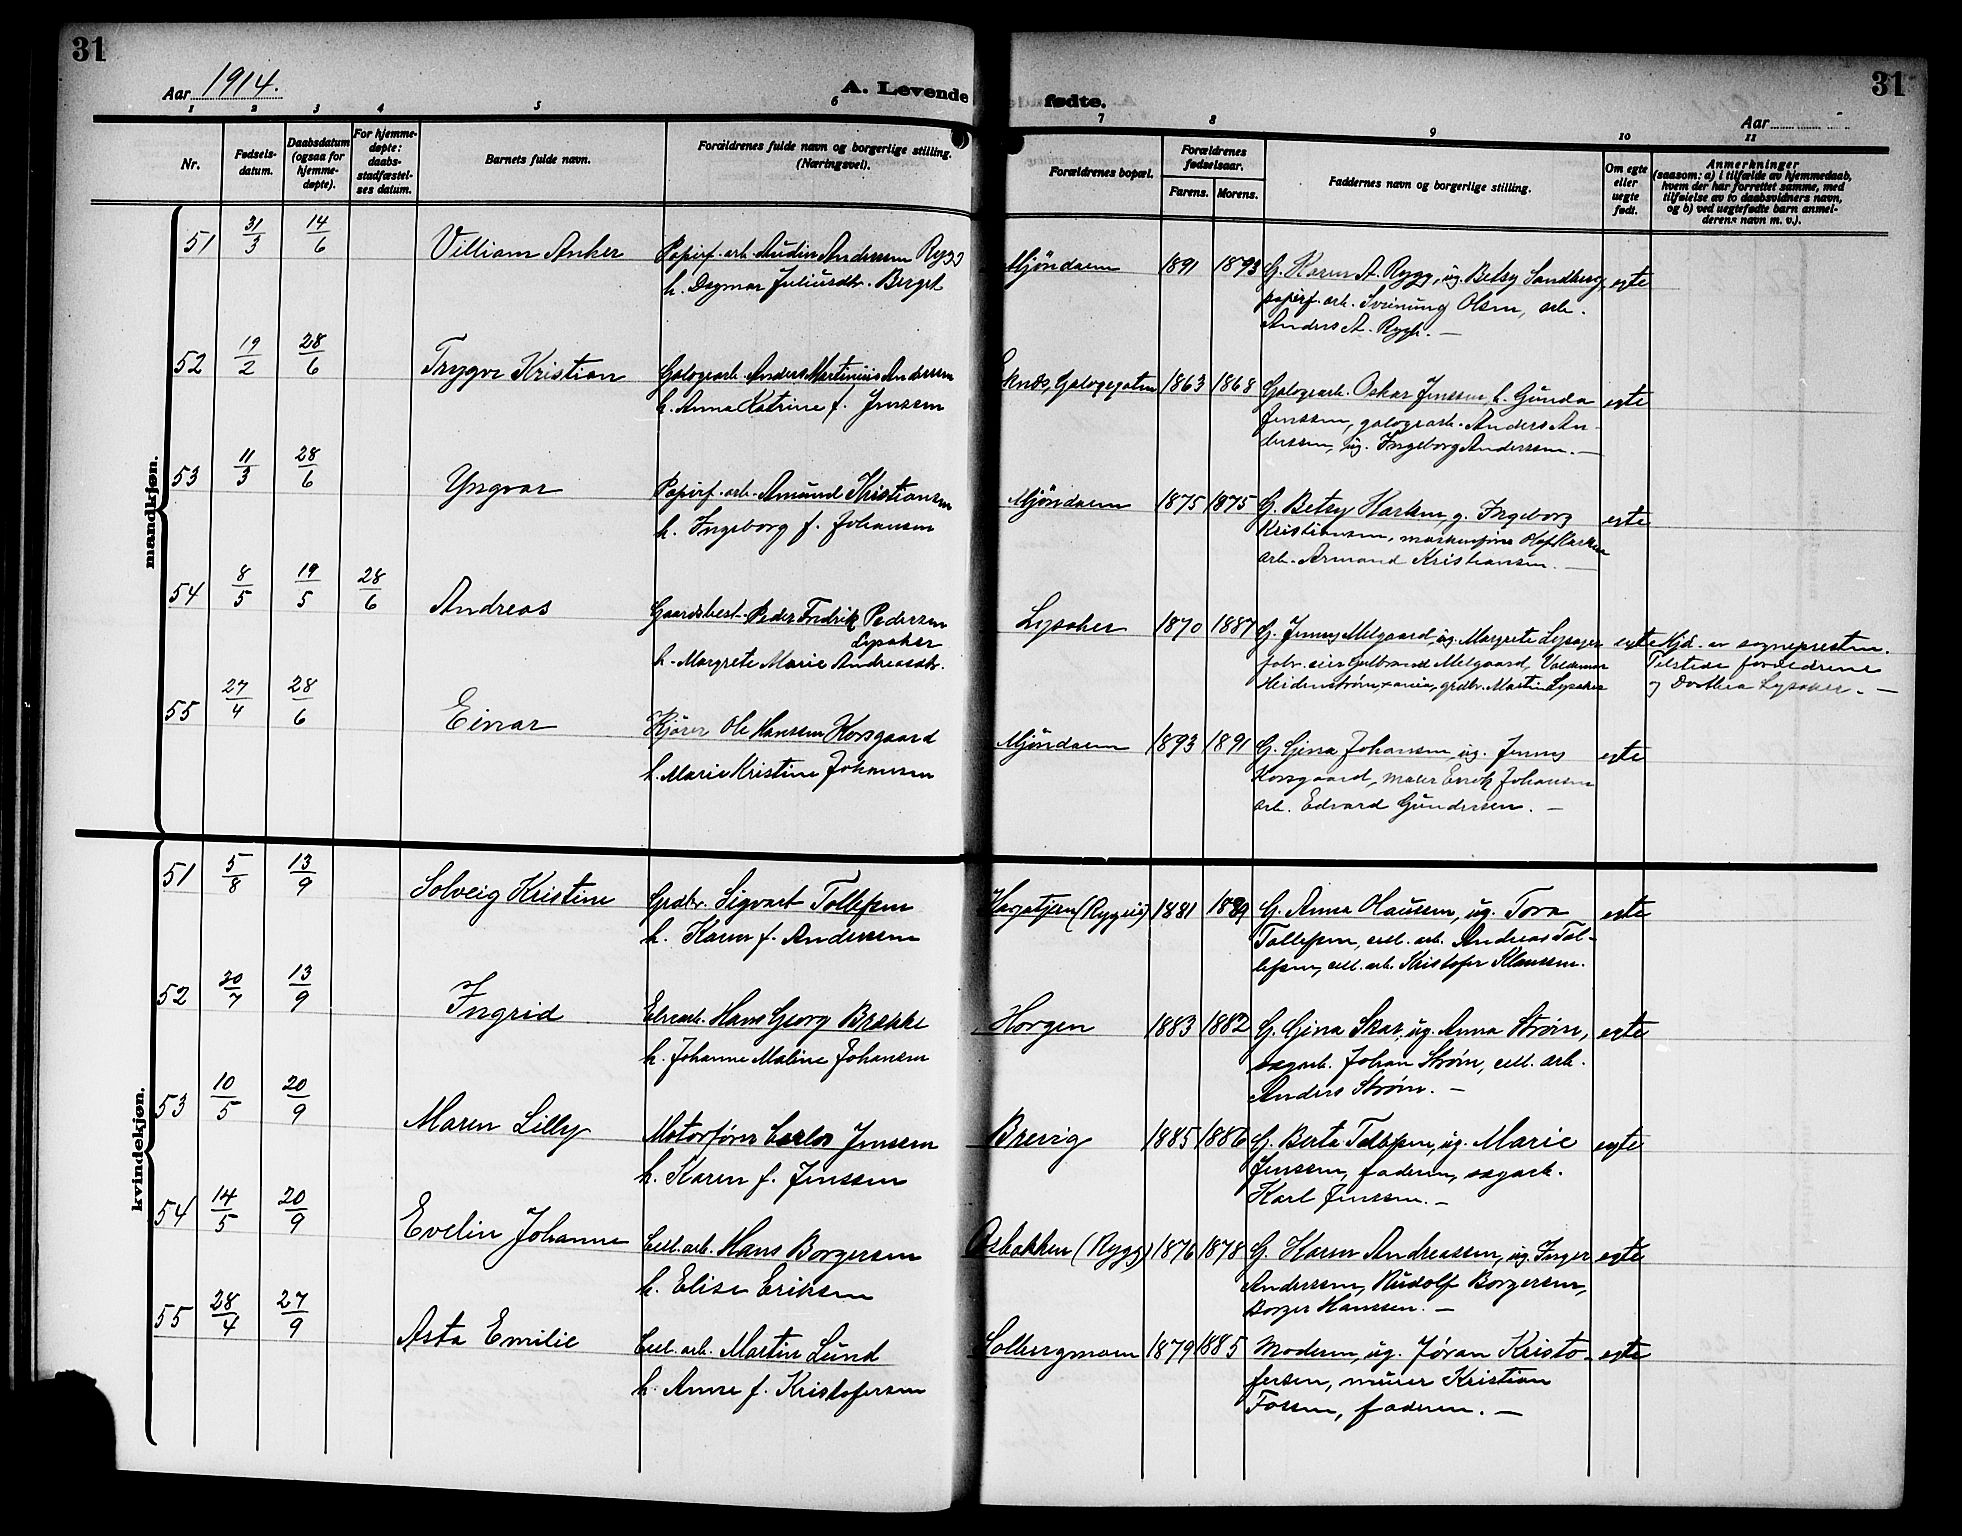 31
31
Aar 1914.
A. Levende
fødte.
Aar
1 2 3 4 5 6 7 8 9 10 11
Nr.
Fødsels-
datum.
Daabsdatum
(ogsaa for
hjemme-
døpte).
For hjemme-
døpte:
daabs-
stadfæstel-
ses datum.
Barnets fulde navn.
Forældrenes fulde navn og borgerlige stilling.
(Næringsvei).
Forældrenes bopæl.
Forældrenes
fødselsaar.
Farens. Morens.
Faddernes navn og borgerlige stilling.
Om egte
eller
uegte
født.
Anmerkninger
(saasom: a) i tilfælde av hjemmedaab,
hvem der har forrettet samme, med
tilføielse av to daabsvidners navn,
og b) ved uegtefødte barn anmel-
derens navn m. v.).
mandkjøn.
51 31/3 14/6 Villiam Anker
Papirf. arb. Audin Anderssen Rygg
h. Dagmar Juliusdtr. Berget
Mjöndalen 1891 1893
G. Karen A. Rygg, ug. Betsy Sandberg,
papirf. arb. Sveinung Olsen, arb.
Anders A. Rygh. —
egte
52 19/2 28/6 Trygve Kristian
Galogearb. Anders Martinius Anderssen
h. Anna Katrine f. Jenssen
Galogegaten 1863 1868
Galogearb. Oskar Jenssen, h. Gunda
Jenssen, galogearb. Anders An-
derssen, ug. Ingeborg Anderssen. —
egte
53 11/3 28/6 Yngvar
Papirf. arb. Amund Kristiansen
h. Ingeborg f. Johansen
Mjöndalen 1875 1875
G. Betzy Karlsen, g. Ingeborg
Kristiansen, Olaf Karlsen
arb. Armand Kristiansen. —
egte
54 8/5 19/5 28/6 Andreas
Gaardbest. Peder Fredrik Pedersen
Lysaker
h. Margrete Marie Andreasdtr.
Lysaker 1870 1887
G. Jenny Melgaard, ug. Margrete Lysager
fabr. eier Gulbrand Melgaard, Valdemar
Heidenstrøm, grdbr. Martin Lysaker
egte
Hjd. av sognepresten.
Tilstede forældrene
og Dorthea Lysaker. —
55 27/4 28/6 Einar
Kjører Ole Hansen Korsgaard
h. Marie Kristine Johansen
Mjöndalen 1893 1891
G. Gina Johansen, ug. Jenny
Korsgaard, maler Erik Johansen
arb. Edvard Gundersen. —
egte
kvindekjøn.
51 5/8 13/9 Solveig Kristine
Grdbr. Sigvart Tollefsen
h. Karen f. Anderssen
Hagatjern (Ryggeis) 1881 1889
G. Anna Clausen, ug. Tora
Tollefsen, cell. arb. Andreas Tol-
lefsen, cell. arb. Kristofer Klaussen.
egte
52 30/7 13/9 Ingrid
Elvearb. Hans Georg Brække
h. Johanne Maline Johansen
Horgen 1883 1882
G. Gina Skar, ug. Anna Strøm,
sagarb. Johan Strøm, cell. arb.
Anders Strøm. —
egte
53 10/5 20/9 Maren Lilly
Motorfører Carlos Jenssen
h. Karen f. Jenssen
Brevig 1885 1886
G. Berta Tollefsen, ug. Marie
Jenssen, faderen, sagarb.
Karl Jenssen. —
egte
54 14/5 20/9 Evelin Johanne
Cell. arb. Hans Borgersen
h. Elise Eriksen
Osbakken (Rygg) 1876 1878
G. Karen Andreassen, ug. Inger
Anderssen, Rudolf Borgersen,
Borger Hanssen. —
egte
55 28/4 27/9 Asta Emilie
Cell. arb. Martin Lund
h. Anne f. Kristofersen
Solbergmoen 1879 1885
Moderen, ug. Jøran Kristo-
fersen, murer Kristian
Fossen, faderen. —
egte